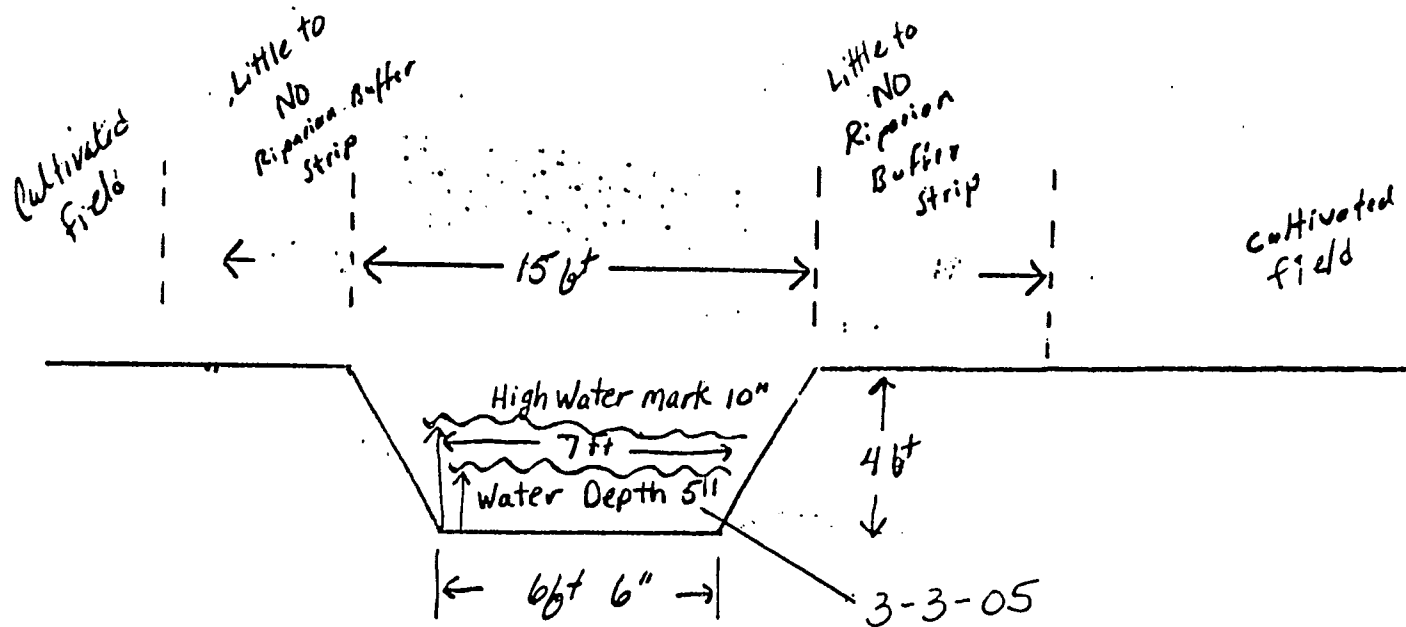 Cultivated
field
Little to
NO
Riparian Buffer
Strip
Little to
NO
Riparian
Buffer
Strip
Cultivated
field
15 ft
High Water mark 10"
7 ft
Water Depth 5"
4 ft
6ft 6"
3-3-05